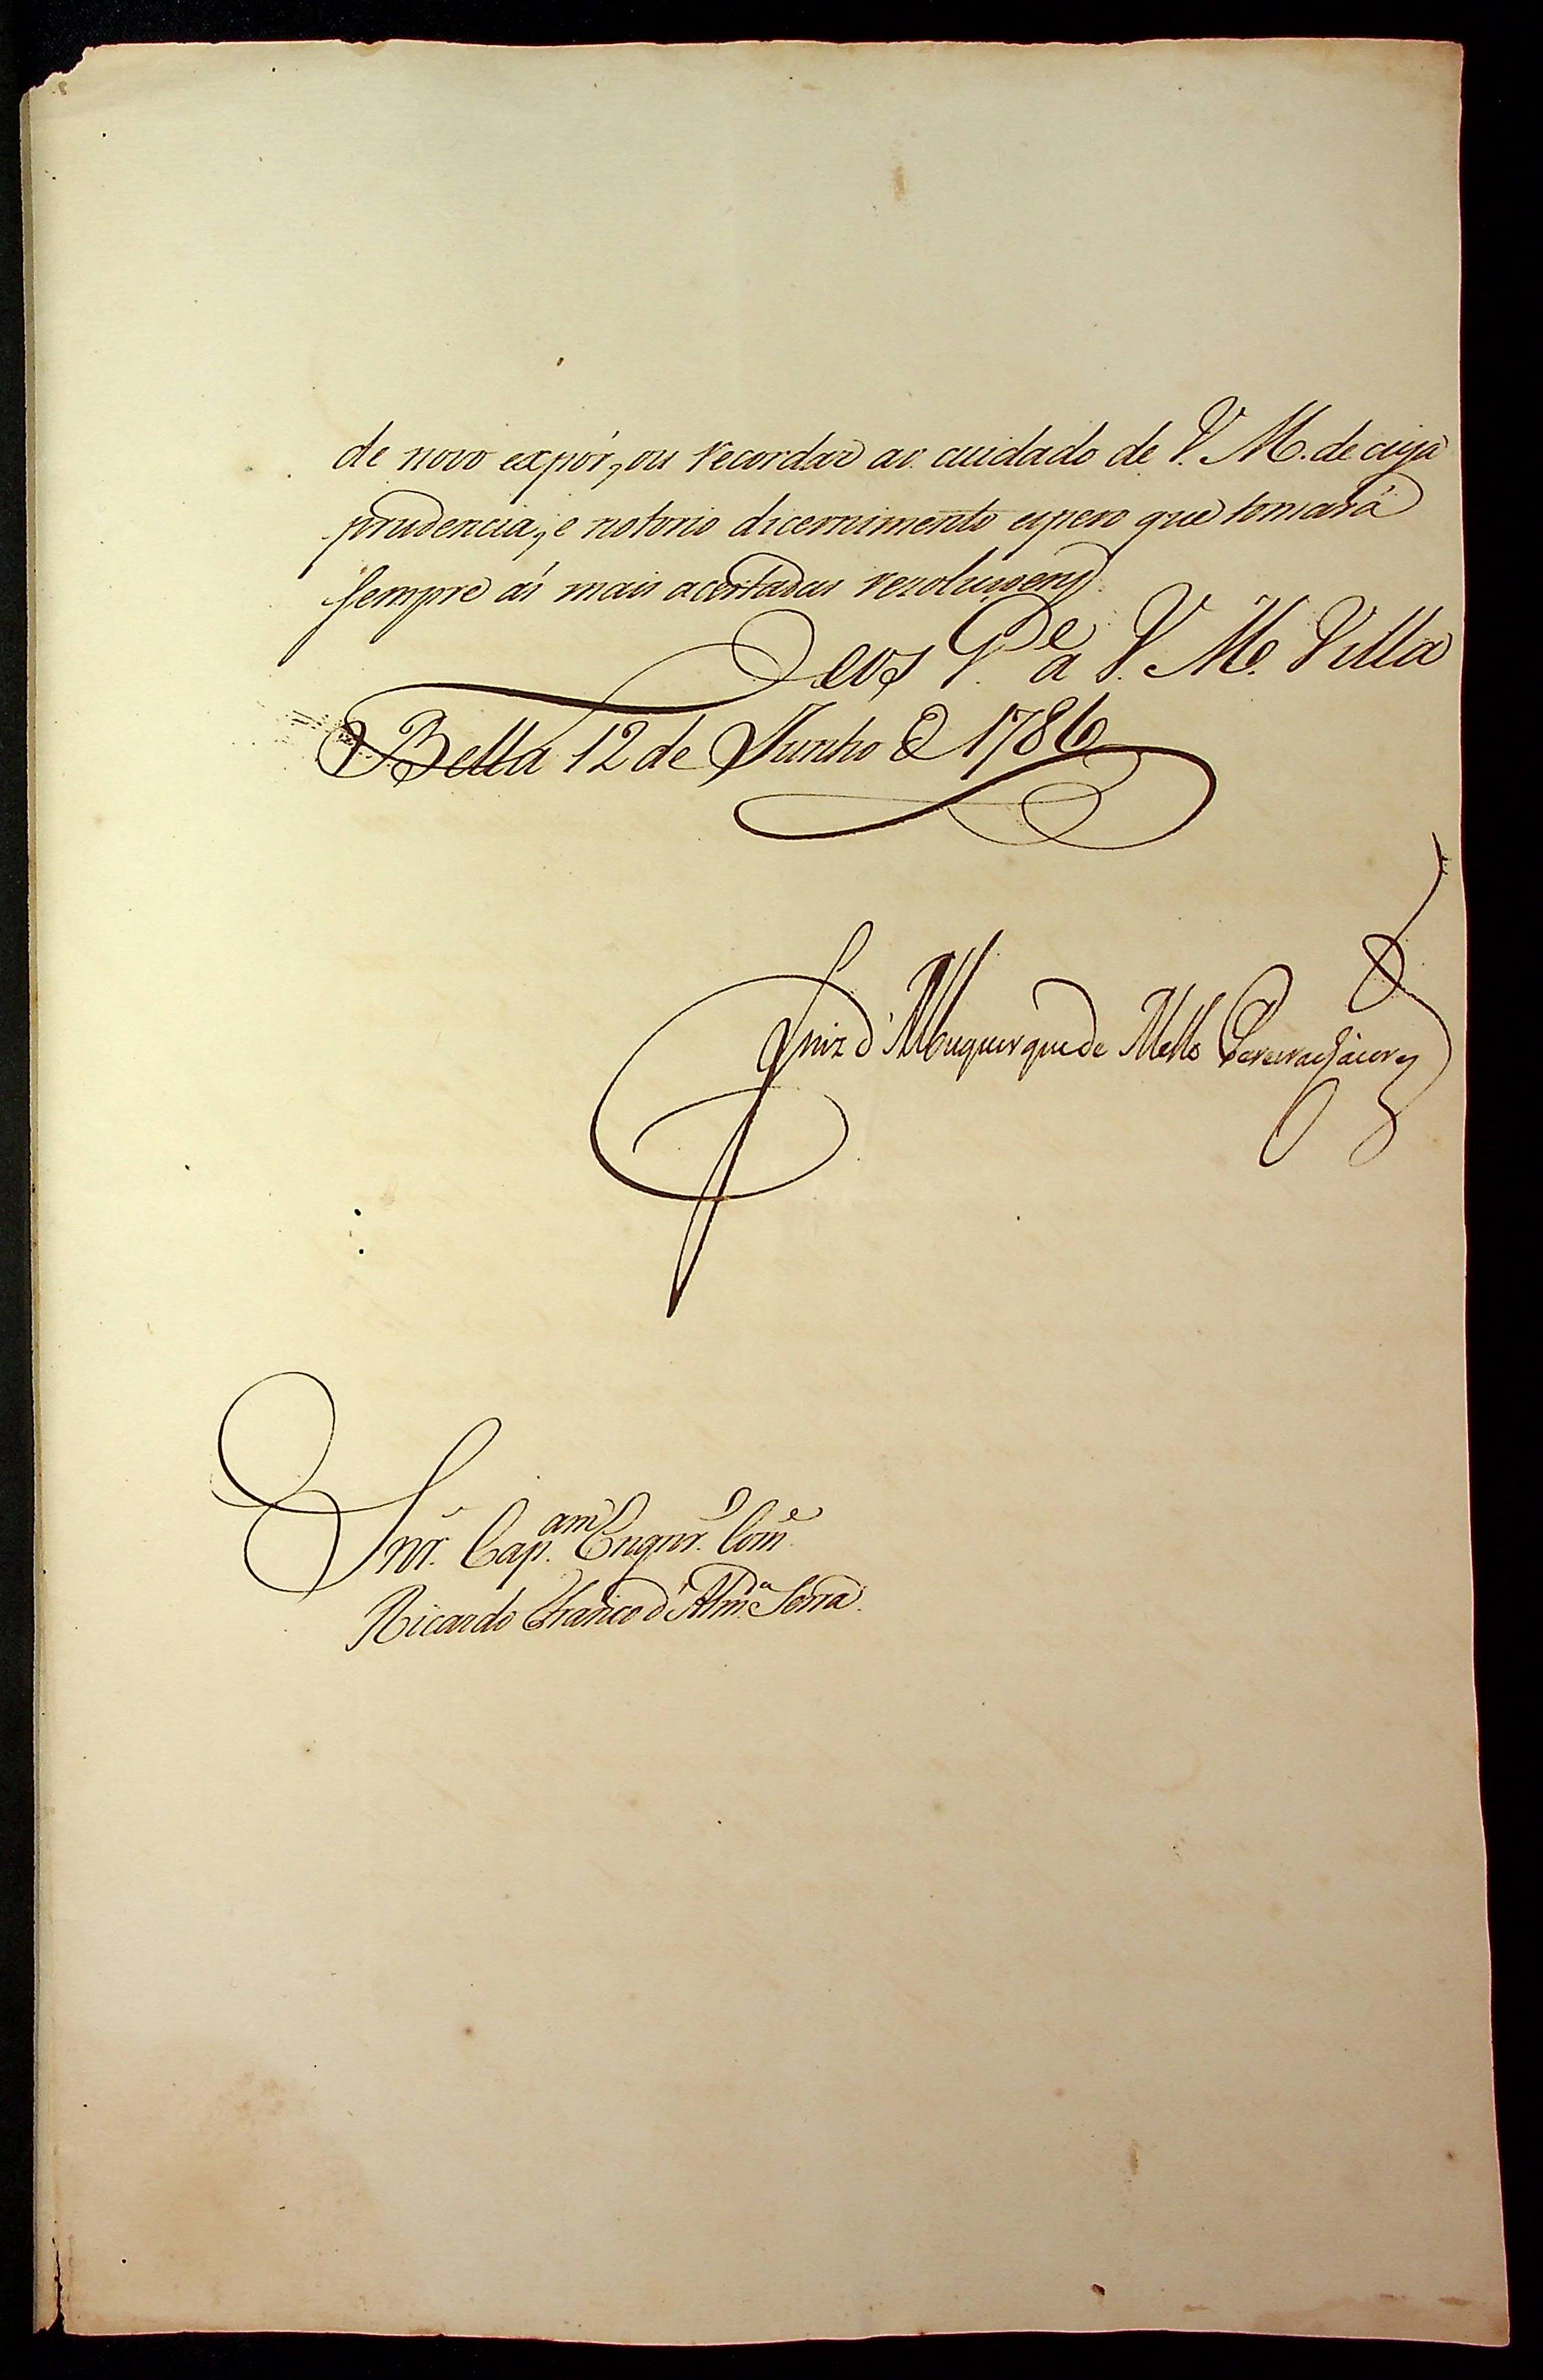 de novo expór, ou recordar ao cuidado de V. M. de cuja
prudencia, e notorio dicernimento espero que tomará
sempre ás mais acertadas rezoluçoens.
Deos G.de a V. M. Villa
Bella 12 de Junho de 1786
Luiz d'Albuquerque de Mello Pereira e Cáceres
Snr. Cap.am Engnr.o Com.e
Ricardo Franco d'Alm.da Serra.